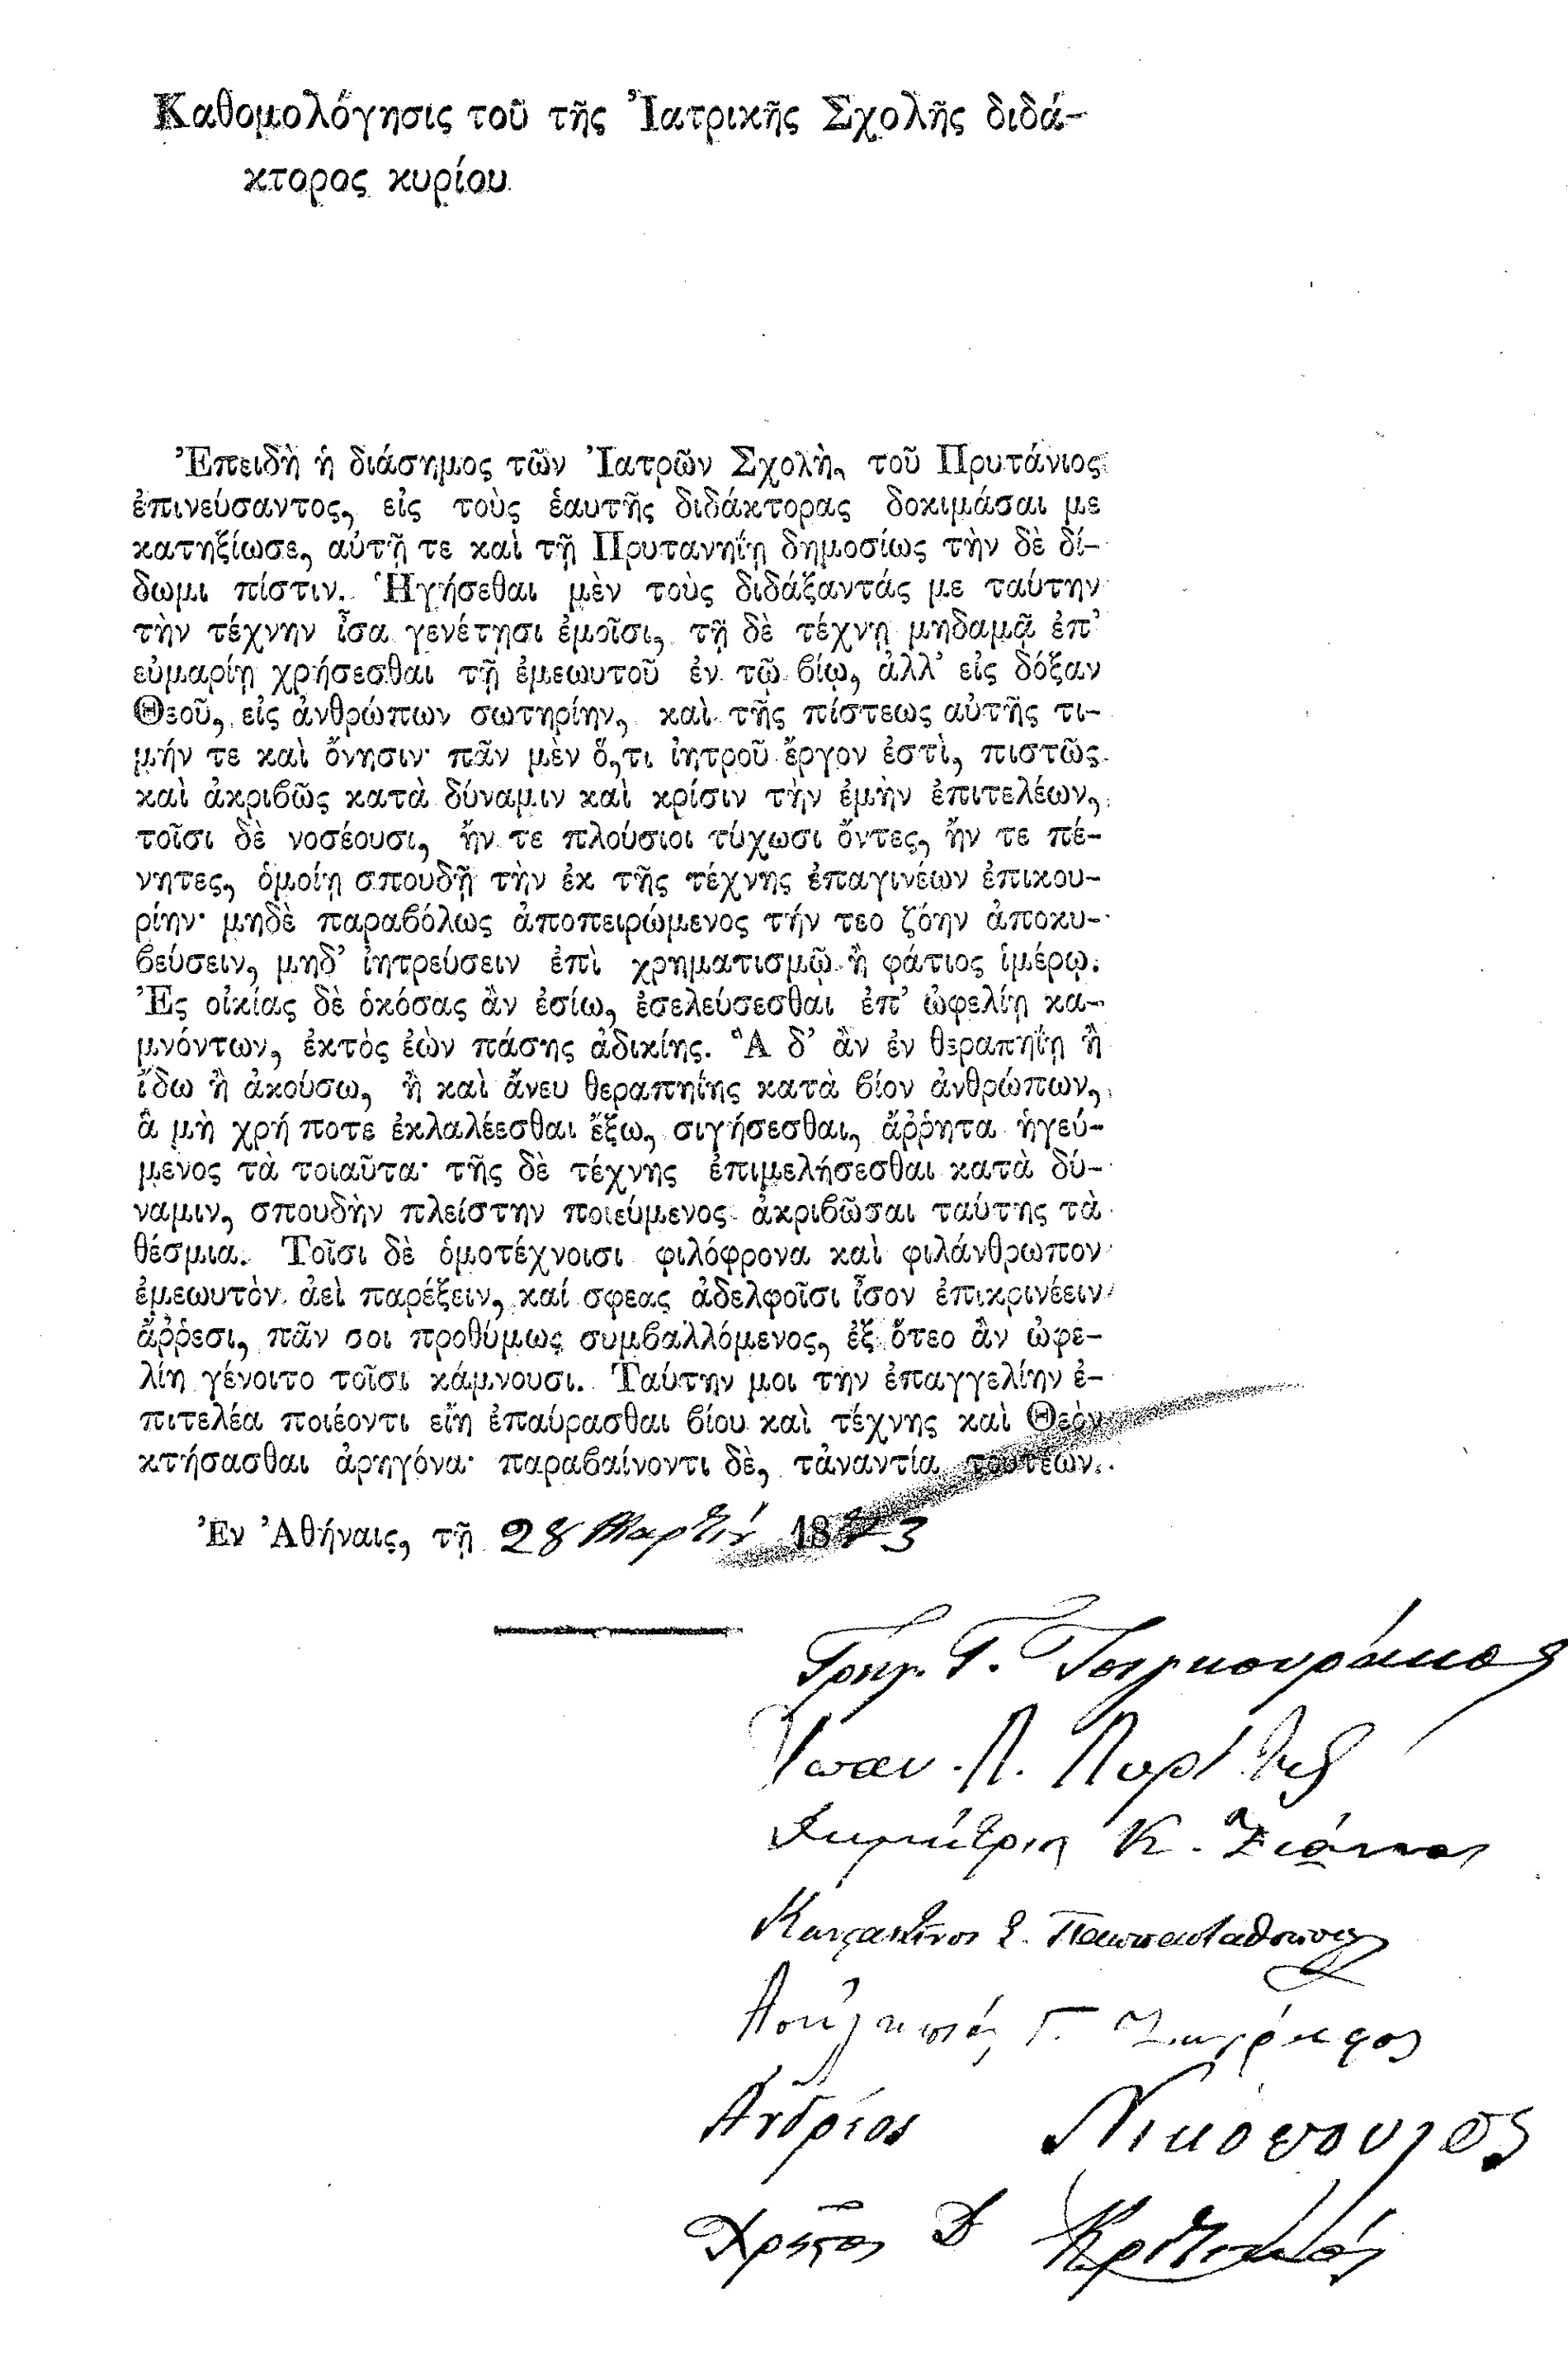 Καθομολόγησις τοῦ τῆς Ἰατρικῆς Σχολῆς διδά-
κτορος κυρίου
Ἐπειδὴ ἡ διάσημος τῶν Ἰατρῶν Σχολὴ, τοῦ Πρυτάνιος
ἐπινεύσαντος, εἰς τοὺς ἑαυτῆς διδάκτορας δοκιμάσαι με
κατηξίωσε, αὐτῇ τε καὶ τῇ Πρυτανηΐῃ δημοσίως τὴν δὲ δί-
δωμι πίστιν. Ἡγήσεθαι μὲν τοὺς διδάξαντάς με ταύτην
τὴν τέχνην ἶσα γενέτῃσι ἐμοῖσι, τῇ δὲ τέχνῃ μηδαμᾷ ἐπ’
εὐμαρίῃ χρήσεσθαι τῇ ἐμεωυτοῦ ἐν τῷ βίῳ, ἀλλ’ εἰς δόξαν
Θεοῦ, εἰς ἀνθρώπων σωτηρίην, καὶ τῆς πίστεως αὐτῆς τι-
μήν τε καὶ ὄνησιν· πᾶν μὲν ὅ,τι ἰητροῦ ἔργον ἐστὶ, πιστῶς
καὶ ἀκριβῶς κατὰ δύναμιν καὶ κρίσιν τὴν ἐμὴν ἐπιτελέων,
τοῖσι δὲ νοσέουσι, ἤν τε πλούσιοι τύχωσι ὄντες, ἤν τε πέ-
νητες, ὁμοίῃ σπουδῇ τὴν ἐκ τῆς τέχνης ἐπαγινέων ἐπικου-
ρίην· μηδὲ παραβόλως ἀποπειρώμενος τήν τεο ζόην ἀποκυ-
βεύσειν, μηδ’ ἰητρεύσειν ἐπὶ χρηματισμῷ ἢ φάτιος ἱμέρῳ.
Ἐς οἰκίας δὲ ὁκόσας ἂν ἐσίω, ἐσελεύσεσθαι ἐπ’ ὠφελίῃ κα-
μνόντων, ἐκτὸς ἐὼν πάσης ἀδικίης. Ἃ δ’ ἂν ἐν θεραπηΐῃ ἢ
ἴδω ἢ ἀκούσω, ἢ καὶ ἄνευ θεραπηίης κατὰ βίον ἀνθρώπων,
ἃ μὴ χρή ποτε ἐκλαλέεσθαι ἔξω, σιγήσεσθαι, ἄῤῥητα ἡγεύ-
μενος τὰ τοιαῦτα· τῆς δὲ τέχνης ἐπιμελήσεσθαι κατὰ δύ-
ναμιν, σπουδὴν πλείστην ποιεύμενος ἀκριβῶσαι ταύτης τὰ
θέσμια. Τοῖσι δὲ ὁμοτέχνοισι φιλόφρονα καὶ φιλάνθρωπον
ἐμεωυτὸν ἀεὶ παρέξειν, καί σφεας ἀδελφοῖσι ἶσον ἐπικρινέειν
ἄῤῥεσι, πᾶν σοι προθύμως συμβαλλόμενος, ἐξ ὅτεο ἂν ὠφε-
λίη γένοιτο τοῖσι κάμνουσι. Ταύτην μοι την ἐπαγγελίην ἐ-
πιτελέα ποιέοντι εἴη ἐπαύρασθαι βίου καὶ τέχνης καὶ Θεὸν
κτήσασθαι ἀρηγόνα· παραβαίνοντι δὲ, τἀναντία τουτέων.
Ἐν Ἀθήναις, τῇ 28 Μαρτίου 1873
Γρηγ. Γ.
Ἰωαν. Π.
Δημήτριος Κ.
Κωνσταντῖνος
Ἀσκληπιός Γ. Ζωγράφος
Ἀνδρέας Νικόπουλος
Χρῆστος Δ Κριτικός